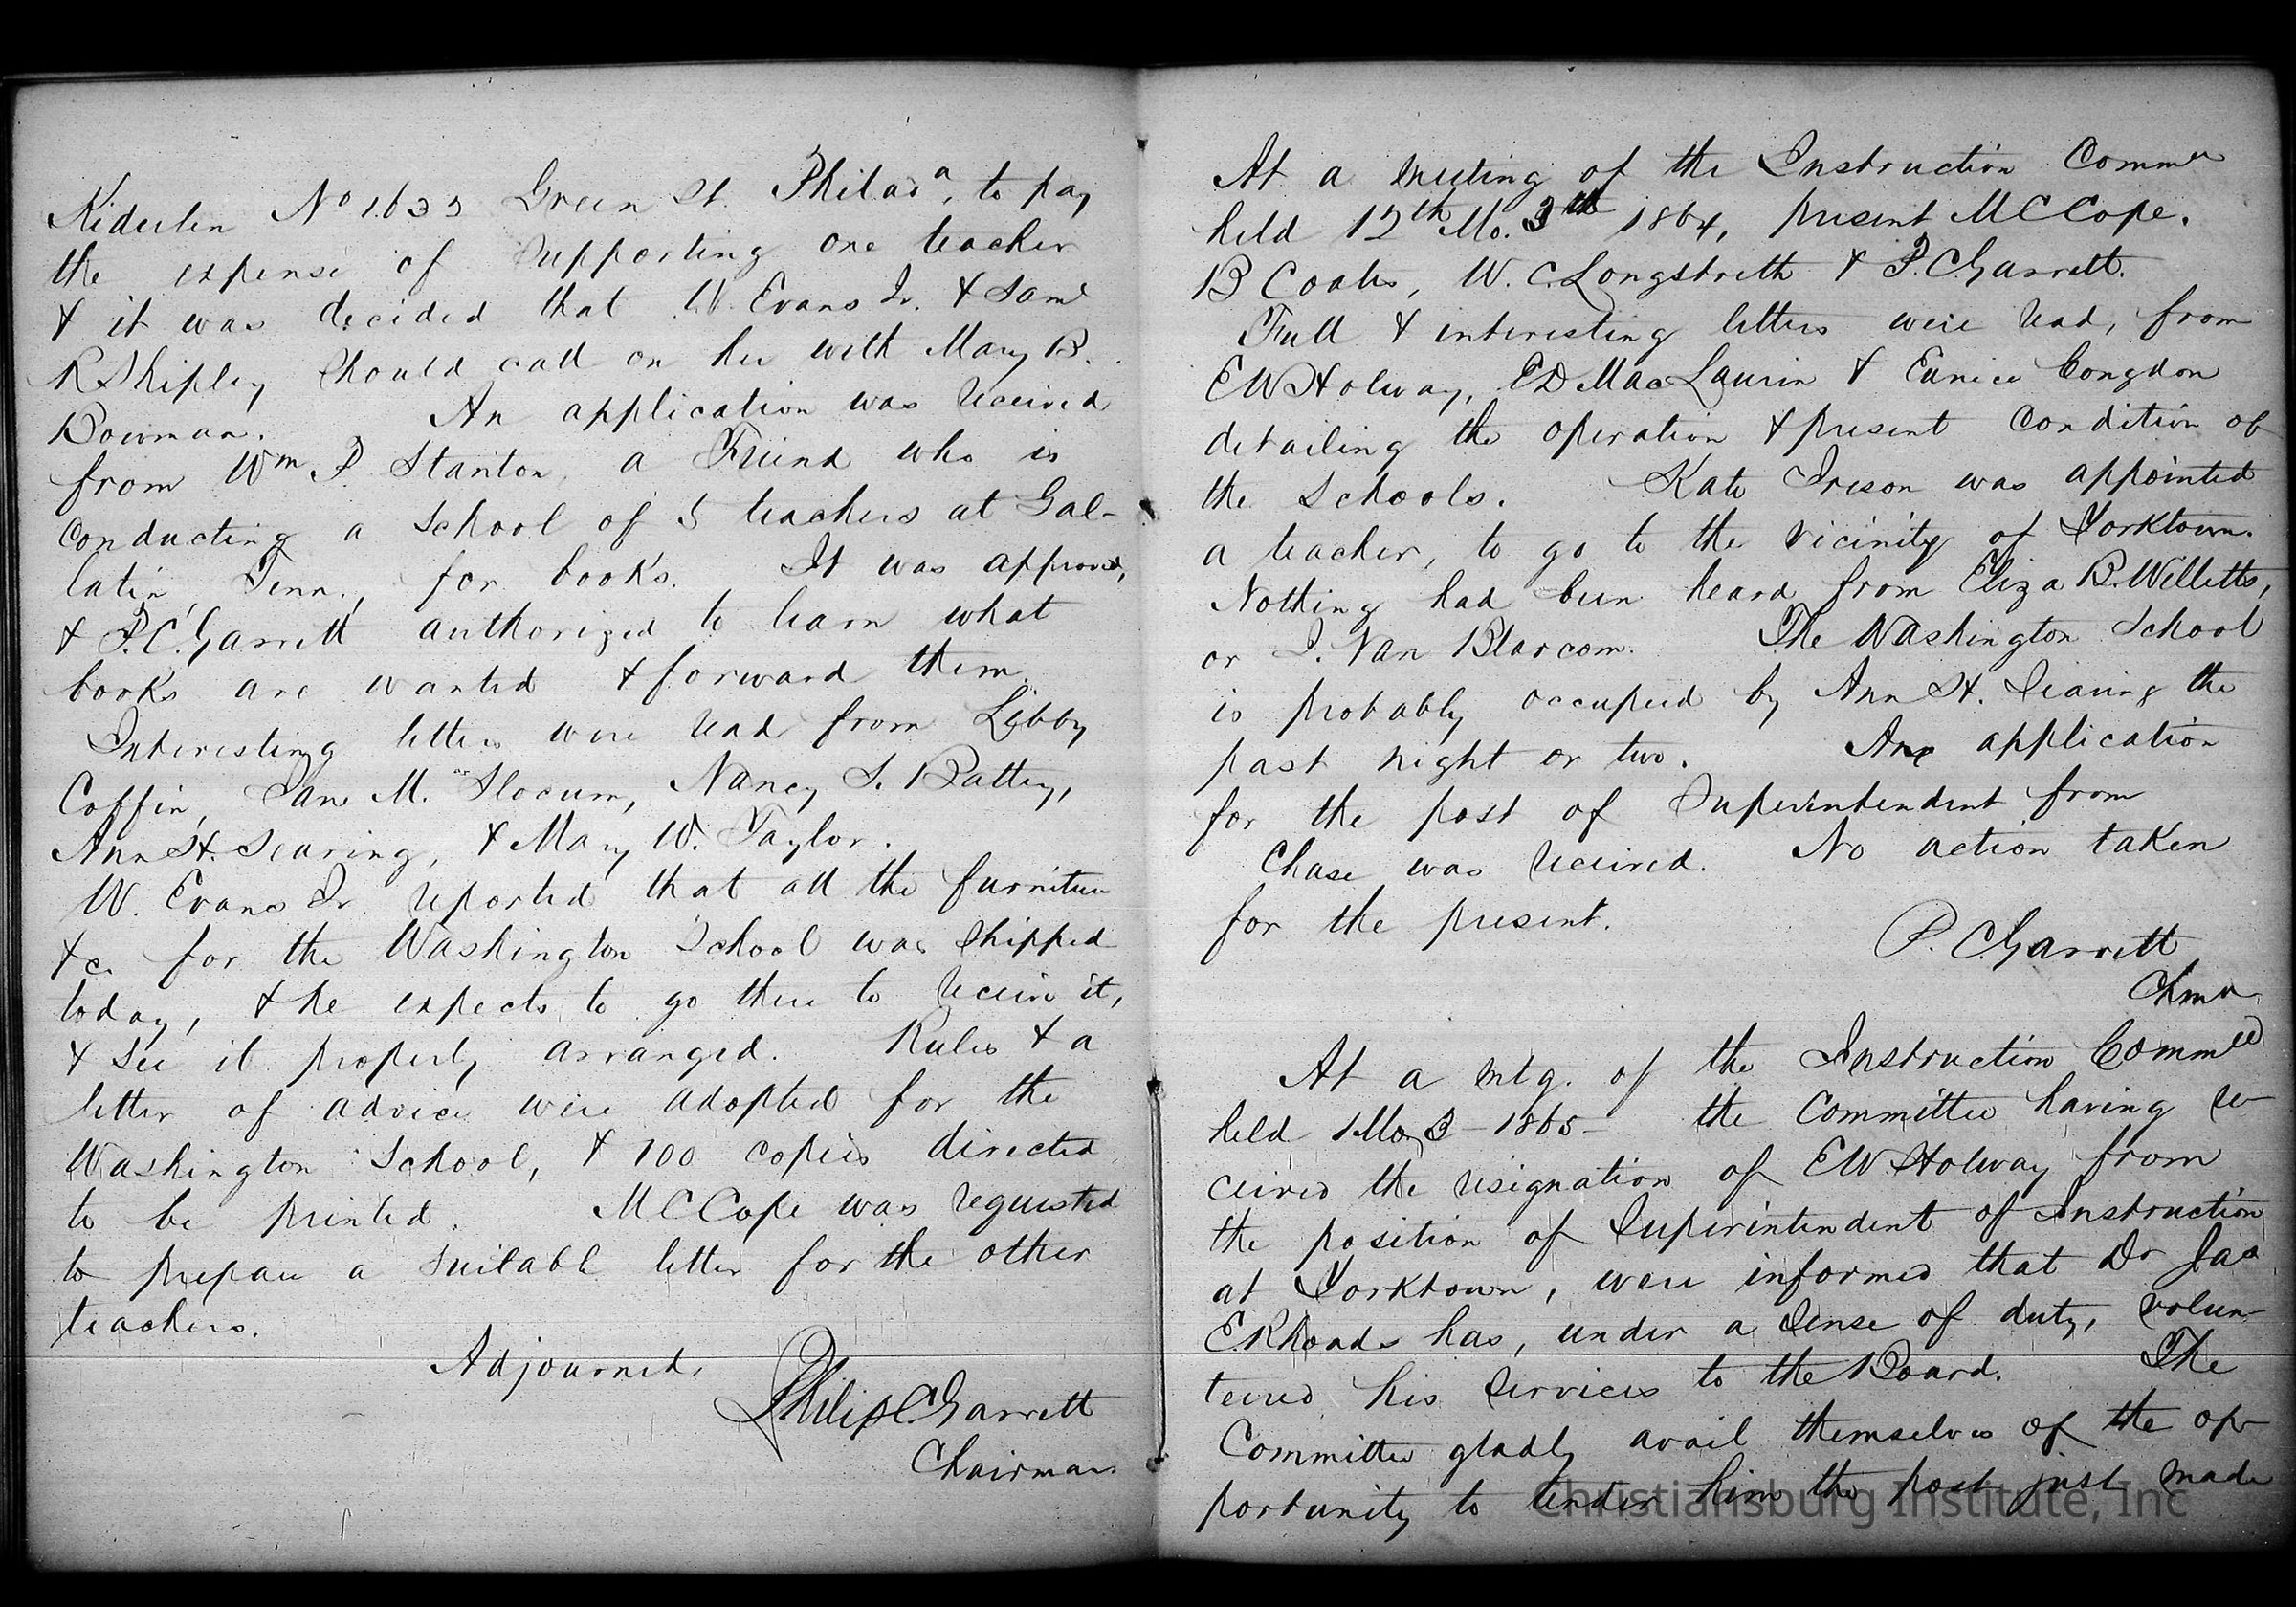 Kiderlen No 1633 Green St. Philada, to pay
the expense of supporting one teacher
& it was decided that W. Evans Jr. & Saml
R Shipley should call on her with Mary B.
Bowman. An application was received
from Wm P. Stanton, a Friend who is
conducting a school of 5 teachers at Gal-
latin Tenn., for books. It was approved,
& P. C. Garrett authorized to learn what
books are wanted & forward them.
Interesting letters were read from Libby
Coffin, Jane M. Slocum, Nancy S. Battey,
Ann H. Searing, & Mary W. Taylor.
W. Evans Jr. reported that all the furniture
&c. for the Washington School was shipped
today, & he expects to go there to receive it,
& see it properly arranged. Rules & a
letter of advice were adopted for the
Washington School, & 100 copies directed
to be printed. M C Cope was requested
to prepare a suitable letter for the other
teachers.
Adjourned.
Philip C Garrett
Chairman.
At a meeting of the Instruction Commee
held 12th Mo. 3th 1864, present M C Cope.
B Coates, W. C. Longstreth & P. C Garrett.
Full & interesting letters were read, from
E W Holway, E D MacLaurin & Eunice Congdon
detailing the operation & present condition of
the schools. Kate Ireson was appointed
a teacher, to go to the vicinity of Yorktown.
Nothing had been heard from Eliza B. Willetts,
or J. Van Blarcom. The Washington School
is probably occupied by Ann H. Searing the
past night or two. An application
for the post of Superintendent from
Chase was received. No action taken
for the present.
P. C Garrett
Chmn
At a mtg. of the Instruction Commee
held 1 Mo. 3 - 1865 - the Committee having re-
ceived the resignation of E W Holway from
the position of Superintendent of Instruction
at Yorktown, were informed that Dr Jas
E Rhoads has, under a sense of duty, volun-
teered his services to the Board. The
Committee gladly avail themselves of the op-
portunity to tender him the post just made
Christiansburg Institute, Inc